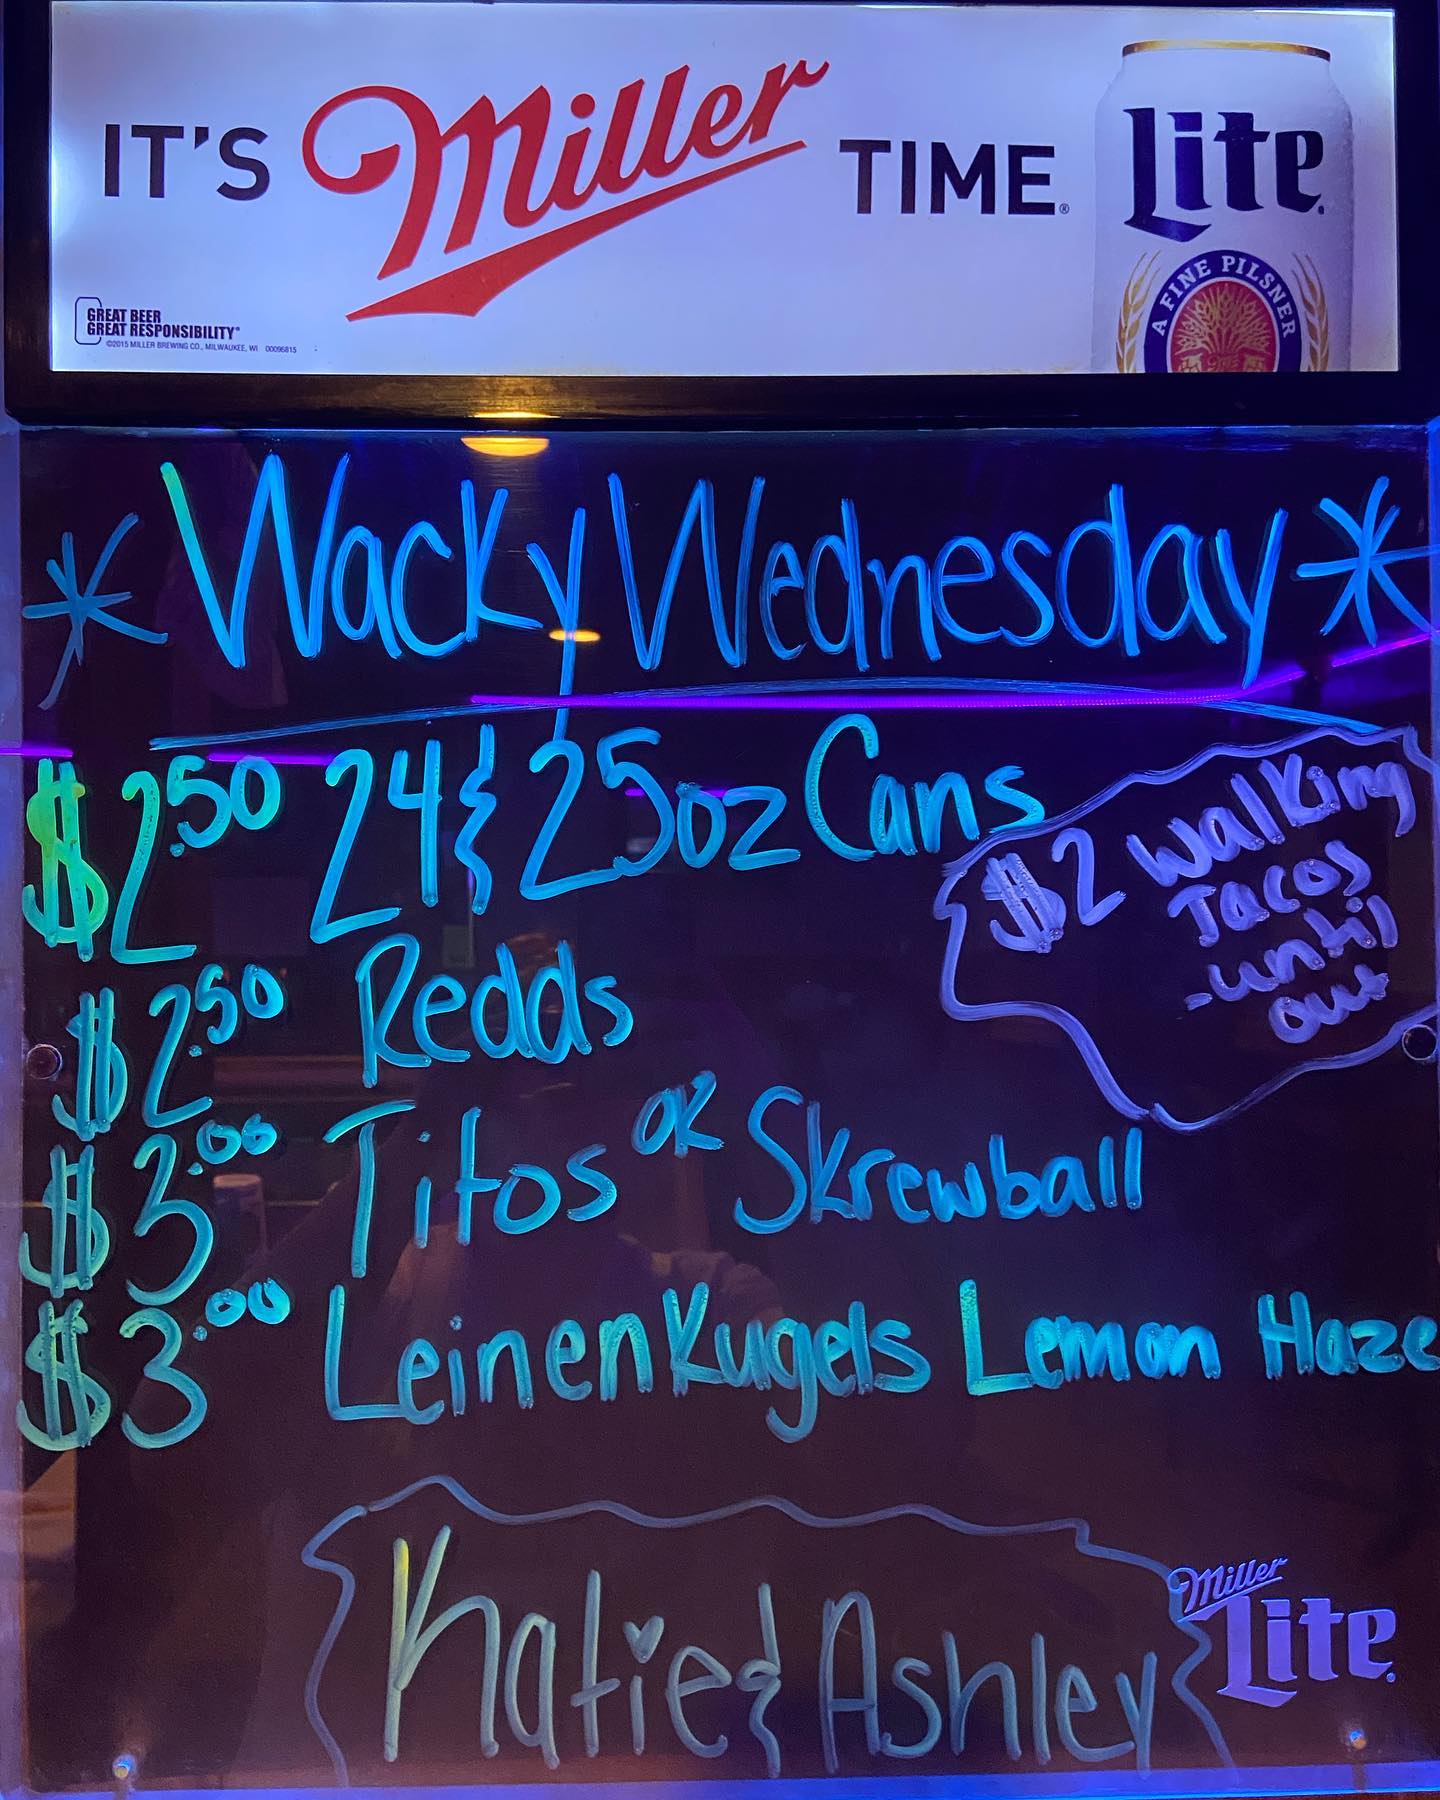 IT'S Miller TIME.®
Lite
A FINE PILSNER
GREAT BEER
GREAT RESPONSIBILITY®
©2015 MILLER BREWING CO., MILWAUKEE, WI 00096815
* Wacky Wednesday *
$2.50 24 & 25oz Cans
$2 Walking
Tacos
-until
out
$2.50 Redds
$3.00 Titos or Skrewball
$3.00 Leinenkugels Lemon Haze
Katie & Ashley
Miller
Lite